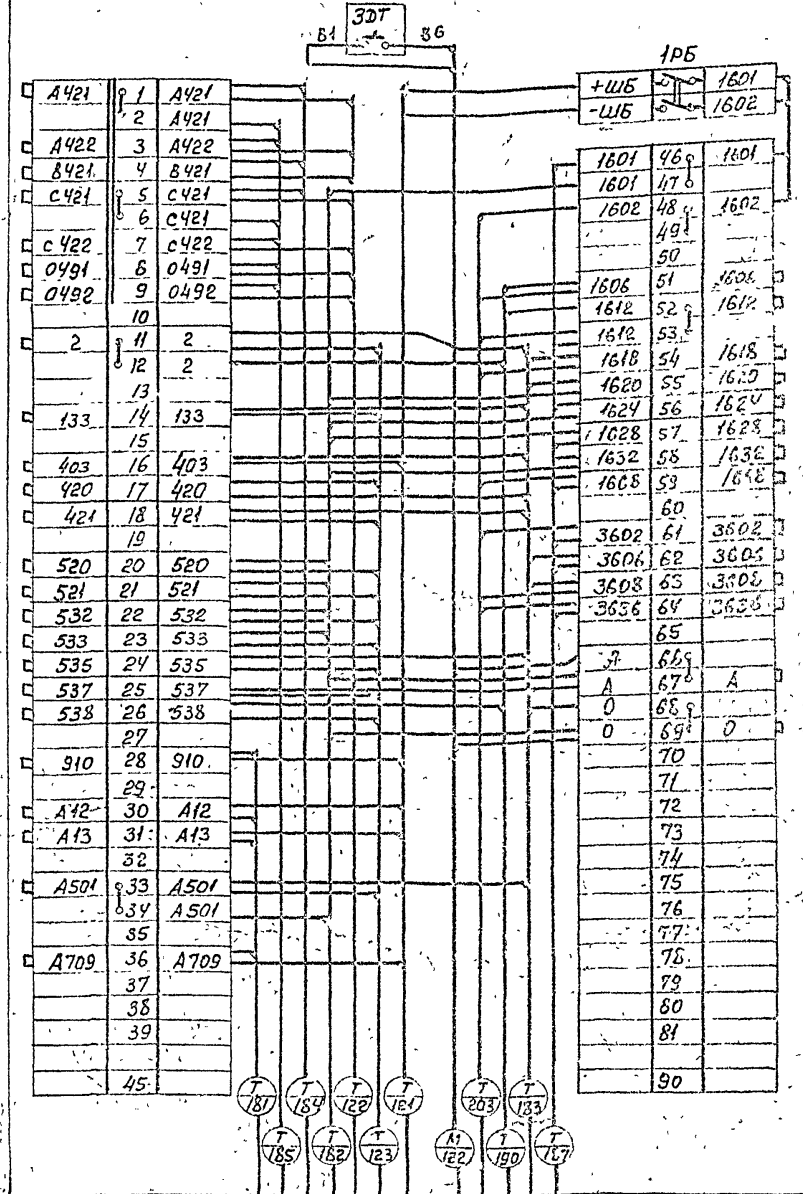 ЗДТ
Б1 Б6
1РБ
+ШБ 1601
-ШБ 1602
А421 1 А421
2 А421
А422 3 А422
В421 4 В421
С421 5 С421
6 С421
С422 7 С422
0491 8 0491
0492 9 0492
10
2 11 2
12 2
13
133 14 133
15
403 16 403
420 17 420
421 18 421
19
520 20 520
521 21 521
532 22 532
533 23 533
535 24 535
537 25 537
538 26 538
27
910 28 910
29
А12 30 А12
А13 31 А13
32
А501 33 А501
34 А501
35
А709 36 А709
37
38
39
45
1601 46 1601
1601 47
1602 48 1602
49
50
1606 51 1606
1612 52 1612
1612 53
1618 54 1618
1620 55 1620
1624 56 1624
1628 57 1628
1632 58 1632
1668 59
60
3602 61 3602
3606 62 3606
3608 63 3608
3636 64 3636
65
А 66
А 67 А
0 68
0 69 0
70
71
72
73
74
75
76
77
78
79
80
81
90
Т 181
Т 184
Т 122
Т 121
Т 203
Т 183
Т 185
Т 182
Т 123
122
Т 190
Т 187